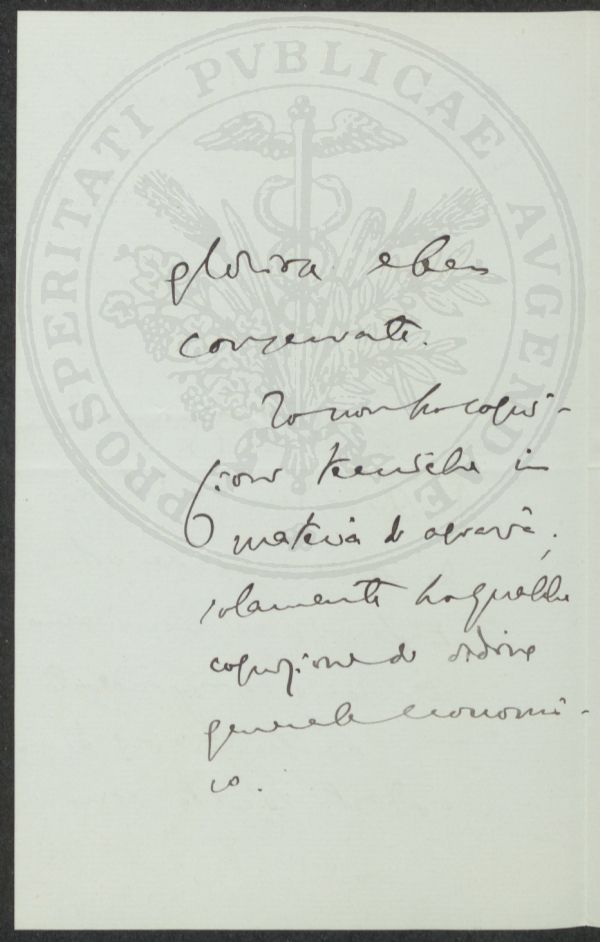 PROSPERITATI PVBLICAE AVGENDAE
gloriosa e ben
conservate.
Io non ho cogni-
zioni tecniche in
materia di agraria;
solamente ho qualche
cognizione di ordine
generale economi-
co.